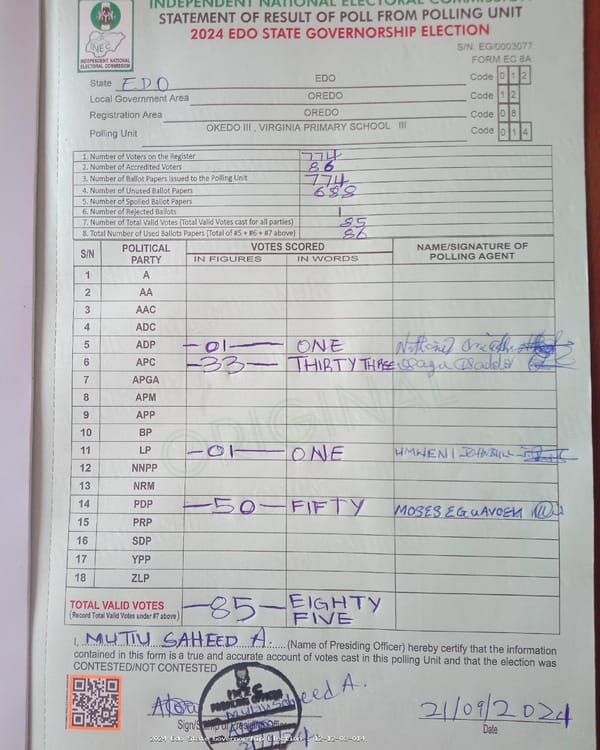 INDEPENDENT NATIONAL ELECTORAL COMMISSION
STATEMENT OF RESULT OF POLL FROM POLLING UNIT
2024 EDO STATE GOVERNORSHIP ELECTION
INEC
INDEPENDENT NATIONAL
ELECTORAL COMMISSION
S/N. EG/0003077
FORM EC 8A
State EDO EDO Code 0 1 2
Local Government Area OREDO Code 1 2
Registration Area OREDO Code 0 8
Polling Unit OKEDO III , VIRGINIA PRIMARY SCHOOL III Code 0 1 4
1. Number of Voters on the Register 774
2. Number of Accredited Voters 86
3. Number of Ballot Papers Issued to the Polling Unit 774
4. Number of Unused Ballot Papers 688
5. Number of Spoiled Ballot Papers
6. Number of Rejected Ballots 1
7. Number of Total Valid Votes (Total Valid Votes cast for all parties) 85
8. Total Number of Used Ballots Papers (Total of #5 + #6 + #7 above) 86
S/N POLITICAL PARTY VOTES SCORED NAME/SIGNATURE OF POLLING AGENT
IN FIGURES IN WORDS
1 A
2 AA
3 AAC
4 ADC
5 ADP -01- ONE
6 APC -33- THIRTY THREE
7 APGA
8 APM
9 APP
10 BP
11 LP -01- ONE
12 NNPP
13 NRM
14 PDP -50- FIFTY MOSES EGUAVOEN
15 PRP
16 SDP
17 YPP
18 ZLP
ORIGINAL
TOTAL VALID VOTES -85- EIGHTY FIVE
(Record Total Valid Votes under #7 above)
I, MUTIU SAHEED A. (Name of Presiding Officer) hereby certify that the information
contained in this form is a true and accurate account of votes cast in this polling Unit and that the election was
CONTESTED/NOT CONTESTED
Saheed A. 21/09/2024
Sign/Stamp of Presiding Officer Date
2024 Edo State Governorship Election - 12-12-08-014